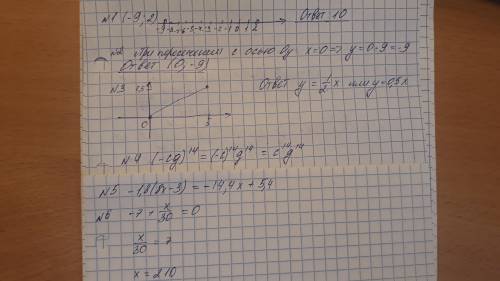 №1 (-9; 2) Ответ 10
-9 -8 -7 -6 -5 -4 -3 -2 -1 0 1 2
№2 При пересечении с осью Oy x=0 => y=0-9=-9
Ответ (0; -9)
№3
2,5
0
5
Ответ y = 1/2 x или y=0,5x
№4 (-cg)^14 = (-c)^14 g^14 = c^14 g^14
№5 -1,8(8x-3) = -14,4x + 5,4
№6 -7 + x/30 = 0
x/30 = 7
x = 210